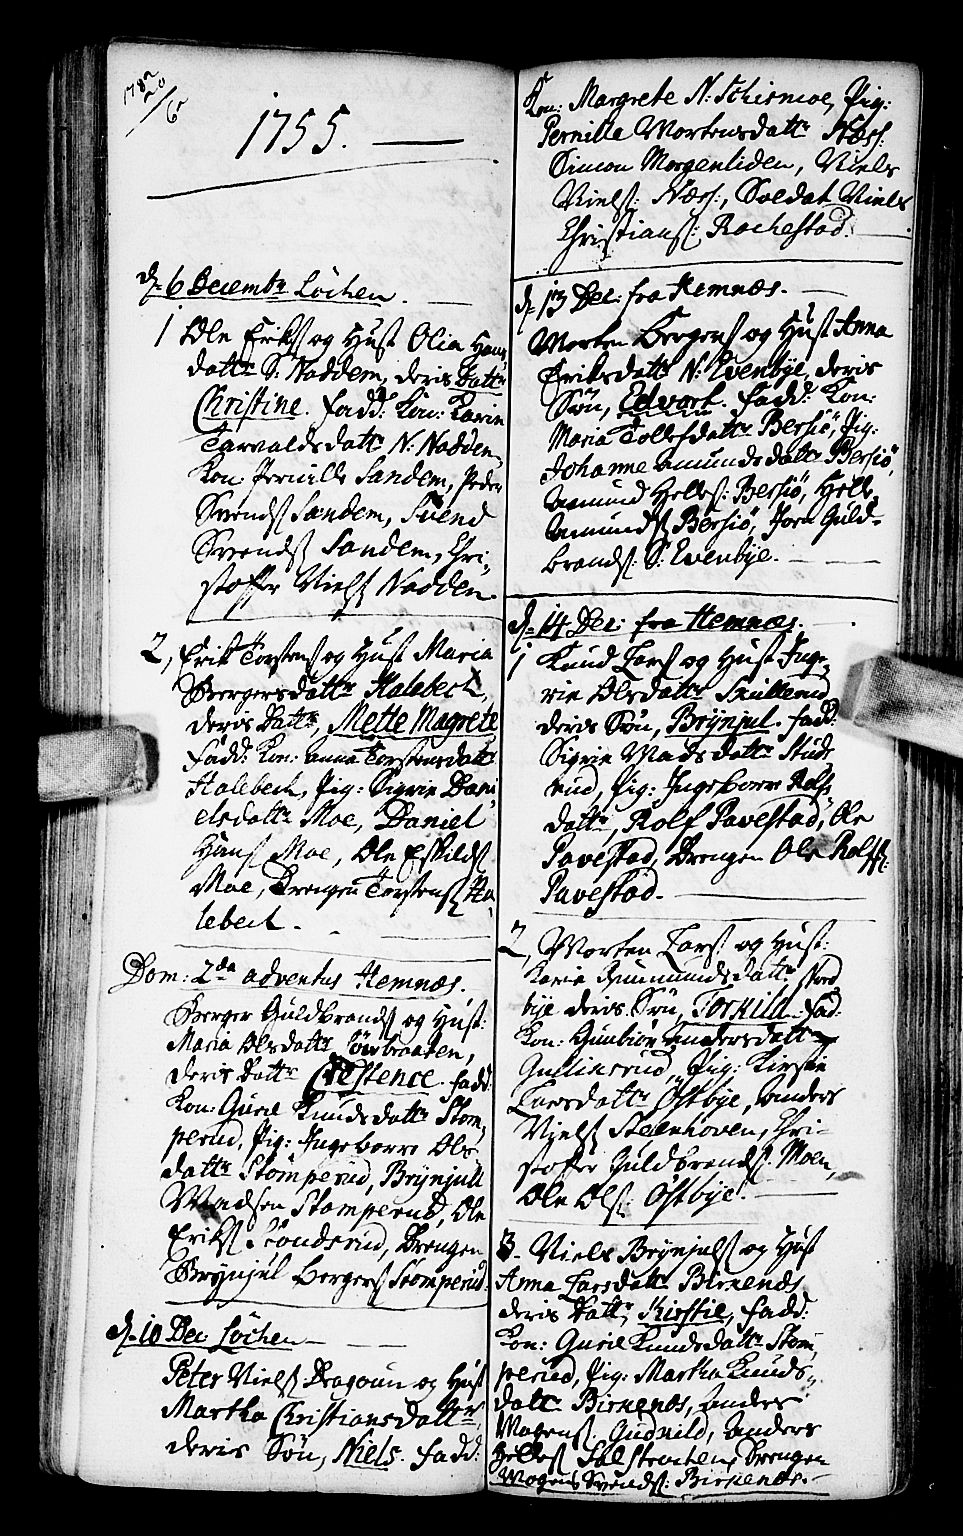 1755.
d. 6 Decembr Löchen.
1 Ole Eriks og Hust Olia Hans
dattr S: Naddem, deris Dattr
Christine. fadd: Kon: Karen
Tarvaldsdattr N: Nadden,
Kon Pernille Sandem, Peder
Svends Sandem, Svend
Svends Sandem, Chri-
stoffer Niels Nadden.
2, Erik Torstens og Hust Maria
Bergersdattr Halebeck,
deris Dattr, Mette Magrete
fadd: Kon: Anna Torstensdattr
Halebeck, Pig: Sigrie Dani
elsdattr Moe, Daniel
Hans Moe, Ole Eskilds
Moe, Drengen Torstens Ha-
lebeck.
Dom: 2da Adventus Hemnæs.
Berger Guldbrands og Hust:
Maria Olsdattr
deris Dattr Chrestence. fadd:
Kon: Gurie Knudsdattr Stom-
perud, Pig: Ingeborre Ols
dattr Stomperud, Brynjull
Madsen Stomperud, Ole
Eriks Sondsrud, Drengen
Brynjul Bergers Stomperud.
d. 10 Dec Löchen
Peter Niels Dragoun og Hust
Martha Christiansdattr
deris Søn, Niels. fadd:
Kon: Margrete N: Schirmoe, Pig:
Pernilla Mortensdattr Næss:
Simon Morgenliden, Niels
Niels: Næss:, Soldat Niels
Christians: Rochestad.
d. 13 Dec: fra Hemnæs.
Morten Bergers og Hust Anna
Eriksdattr N: Evenbye, deris
Søn, Edvort. fadd: Kon:
Maria Tollefsdattr Bersiö, Pig:
Johanne Amundsdattr Bersiö,
Amund Helles: Bersiö, Helle
Amunds Bersiö, Joen Guld-
brands: S: Evenbye.
d. 14 Dec: fra Hemnæs.
1 Knud Lars og Hust Inge-
rie Olsdattr Skullerud
deris Søn, Brynjul. fadd:
Sigrie Madsdattr Skuls
rud, Pig: Ingeborre Rolfs
dattr, Rolf Pavestad, Ole
Pavestad, Drengen Ole Rolfs:
Pavestad.
2, Morten Lars og Hust:
Karie Gummundsdattr
bye deris Søn, Torkild. fad:
Kon: Gunbiör Andersdattr
Gullinsrud, Pig: Kirstie
Larsdattr Östbye, Anders
Niels Steenhoven, Chri-
stoffer Guldbrands: Moen,
Ole Ols: Östbye.
3. Niels Brynjuls og Hust
Anna Larsdattr Birkenæs
deris Dattr, Kirstie, fadd:
Kon: Gurie Knudsdattr Stom
perud, Pig: Martha Knuds-
dattr Birkenæs, Anders
Mogens: Gudvild, Anders
Helles Drengen
Mogens Svends: Birkenæs.